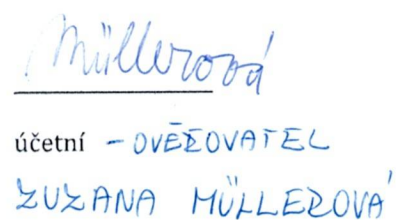 Müllerová
účetní - OVĚŘOVATEL
ZUZANA MÜLLEROVÁ